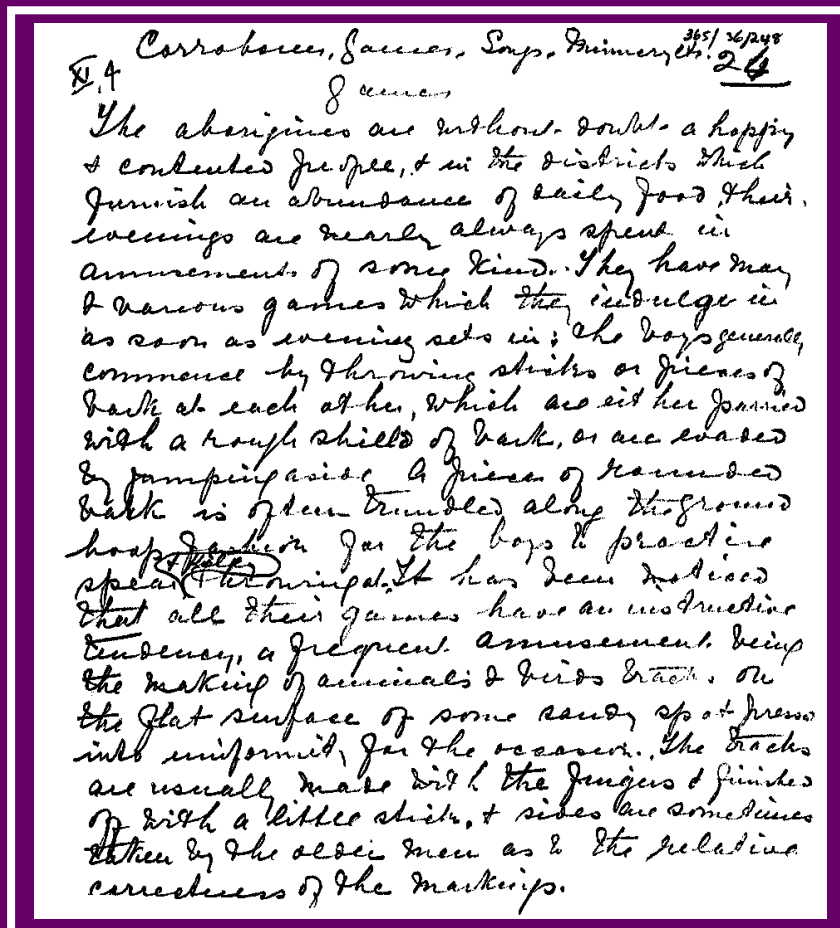 Corroborees, Games, Songs, Mimicry etc. 365/36/248
XI, 4 24
Games
The aborigines are without doubt a happy
& contented people, & in the districts which
furnish an abundance of daily food, their
evenings are nearly always spent in
amusements of some kind. They have many
& various games which they indulge in
as soon as evening sets in; the boys generally
commence by throwing sticks or pieces of
bark at each other, which are either parried
with a rough shield of bark, or are evaded
by jumping aside. A piece of rounded
bark is often trundled along the ground
hoop fashion for the boys to practice
spear throwing at. It has been noticed
that all their games have an instructive
tendency, a frequent amusement being
the making of animals & birds tracks on
the flat surface of some sandy spot pressed
into uniformity for the occasion. The tracks
are usually made with the fingers & finished
off with a little stick, & sides are sometimes
taken by the older men as to the relative
correctness of the markings.